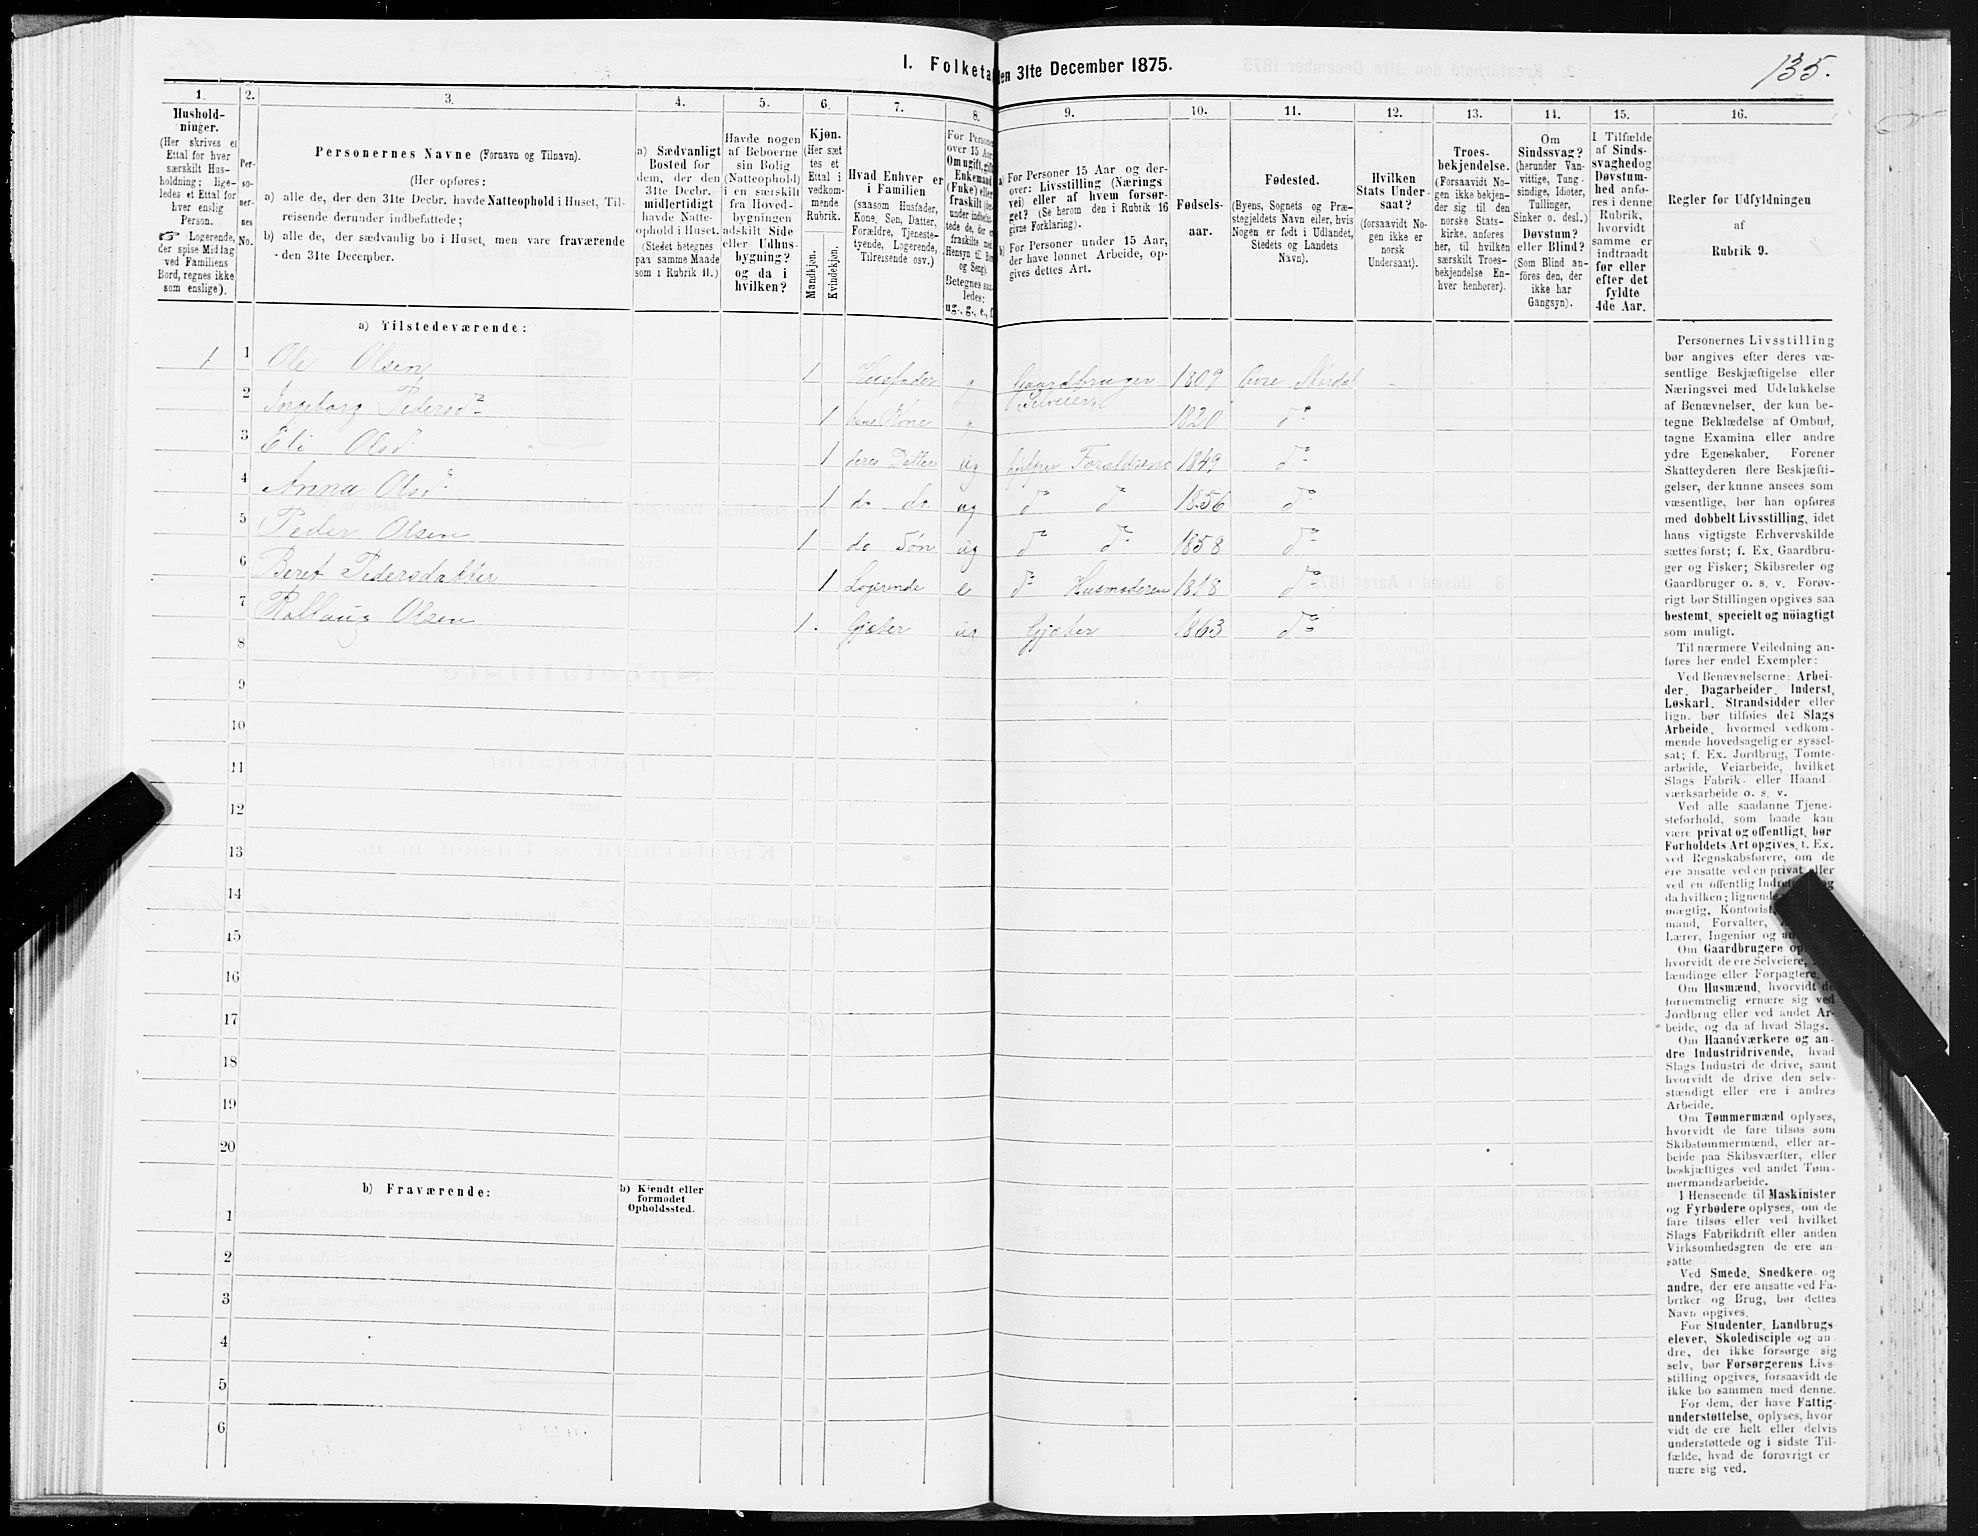 135.
I. Folketa
den 31te December 1875.
1.
2.
3.
4.
5.
6.
7.
8.
9.
10.
11.
12.
13.
14.
15.
16.
Hushold-
ninger.
(Her skrives et
Ettal for hver
særskilt Hus-
holdning; lige-
ledes et Ettal for
hver enslig
Person.
☞ Logerende,
der spise Middag
ved Familiens
Bord, regnes ikke
som enslige).
Per-
so-
ner-
nes
No.
Personernes Navne (Fornavn og Tilnavn).
(Her opføres:
a) alle de, der den 31te Decbr. havde Natteophold i Huset, Til-
reisende derunder indbefattede;
b) alle de, der sædvanlig bo i Huset, men vare fraværende
den 31te December.
a) Sædvanligt
Bosted for
dem, der den
31te Decbr.
midlertidigt
havde Natte-
ophold i Huset.
(Stedet betegnes
paa samme Maade
som i Rubrik 11.)
Havde nogen
af Beboerne
sin Bolig
(Natteophold)
i en særskilt
fra Hoved-
bygningen
adskilt Side
eller Udhus-
bygning?
og da i
hvilken?
Kjøn.
(Her sæt
tes et
Ettal i
vedkom-
mende
Rubrik.
Mandkjøn.
Kvindekjøn.
Hvad Enhver er
i Familien
(saasom Husfader,
Kone, Søn, Datter,
Forældre, Tjeneste-
tyende, Logerende,
Tilreisende osv.)
For Persone
over 15 Aar
Om ugift, gift,
Enkemand
(Enke) eller
fraskilt (der-
under indbefat-
tede de, der er
fraskilte med
Hensyn til Bor
og Seng).
Betegnes saa-
ledes:
ug., g., e., f.
a) For Personer 15 Aar og der-
over: Livsstilling (Nærings
vei) eller af hvem forsør-
get? (Se herom den i Rubrik 16
givne Forklaring).
b) For Personer under 15 Aar,
der have lønnet Arbeide, op-
gives dettes Art.
Fødsels-
aar.
Fødested.
(Byens, Sognets og Præ-
stegjeldets Navn eller, hvis
Nogen er født i Udlandet,
Stedets og Landets
Navn).
Hvilken
Stats Under-
saat?
(forsaavidt No-
gen ikke er
norsk
Undersaat).
Troes-
bekjendelse.
(Forsaavidt No-
gen ikke bekjen-
der sig til den
norske Stats-
kirke, anføres
her, til hvilken
særskilt Troes-
bekjendelse En-
hver henhører).
Om
Sindssvag?
(herunder Van-
vittige, Tung-
sindige, Idioter,
Tullinger,
Sinker o. desl.)
Døvstum?
eller Blind?
(Som Blind an-
føres den, der
ikke har
Gangsyn).
I Tilfælde
af Sinds-
svaghed og
Døvstum-
hed anfø-
res i denne
Rubrik,
hvorvidt
samme er
indtraadt
før eller
efter det
fyldte
4de Aar.
Regler for Udfyldningen
af
Rubrik 9.
a) Tilstedeværende:
1 1 Ole Olsen 1 Husfader g Gaardbruger Selveier 1809 Øvre Stördal
2 Ingeborg Pedersd. 1 hans Kone g 1820 do
3 Eli Olsd. 1 deres Datter ug hjelper Forældrene 1849 do
4 Anna Olsd. 1 do do ug do do 1856 do
5 Peder Olsen 1 do Søn ug do do 1858 do
6 Beret Pedersdatter 1 Logerende e do Husmoderen 1818 do
7 Olsen 1 Gjæter ug Gjæter 1863 do
8
9
10
11
12
13
14
15
16
17
18
19
20
b) Fraværende:
b) Kjendt eller
formodet
Opholdssted.
1
2
3
4
5
6
Personernes Livsstilling
bør angives efter deres væ-
sentlige Beskjæftigelse eller
Næringsvei med Udelukkelse
af Benævnelser, der kun be-
tegne Beklædelse af Ombud,
tagne Examina eller andre
ydre Egenskaber. Forener
Skatteyderen flere Beskjæfti-
gelser, der kunne ansees som
væsentlige, bør han opføres
med dobbelt Livsstilling, idet
hans vigtigste Erhvervskilde
sættes først; f. Ex. Gaardbru-
ger og Fisker; Skibsreder og
Gaardbruger o. s. v. Forøv-
rigt bør Stillingen opgives saa
bestemt, specielt og nöiagtigt
som muligt.
Til nærmere Veiledning an-
føres her endel Exempler:
Ved Benævnelserne: Arbei-
der, Dagarbeider, Inderst,
Løskarl, Strandsidder eller
lign. bør tilføies det Slags
Arbeide, hvormed vedkom-
mende hovedsagelig er syssel-
sat; f. Ex. Jordbrug, Tomte-
arbeide, Veiarbeide, hvilket
Slags Fabrik- eller Haand-
værksarbeide o. s. v.
Ved alle saadanne Tjene-
steforhold, som baade kan
være privat og offentligt, bør
Forholdets Art opgives, f. Ex.
ved Regnskabsførere, om de
ere ansatte ved en privat eller
ved en offentlig
da hvilken; lignende
mægtig, Kontorist,
mand, Forvalter,
Lærer, Ingeniør og
Om Gaardbrugere
hvorvidt de ere Selveiere,
lændinge eller Forpagtere.
Om Husmænd, hvorvidt de
fornemmelig ernære sig ved
Jordbrug eller ved andet Ar-
beide, og da af hvad Slags.
Om Haandværkere og an-
dre Industridrivende, hvad
Slags Industri de drive, samt
hvorvidt de drive den selv-
stændigt eller ere i andres
Arbeide.
Om Tømmermænd oplyses,
hvorvidt de fare tilsøs som
Skibstømmermænd, eller ar-
beide paa Skibsværfter, eller
beskjæftiges ved andet Tøm-
mermandsarbeide.
I Henseende til Maskinister
og Fyrbødere oplyses, om de
fare tilsøs eller ved hvilket
Slags Fabrikdrift eller anden
Virksomhedsgren de ere an-
satte
Ved Smede, Snedkere og
andre, der ere ansatte ved Fa-
briker og Brug, bør dettes
Navn opgives.
For Studenter, Landbrugs
elever, Skoledisciple og an-
dre, der ikke forsørge sig
selv, bør Forsørgerens Livs-
stilling opgives, forsaavidt de
ikke bo sammen med denne.
For dem, der have Fattig-
understøttelse, oplyses, hvor
vidt de ere helt eller delvis
understøttede og i sidste Til-
fælde, hvad de forøvrigt er
nære sig ved.